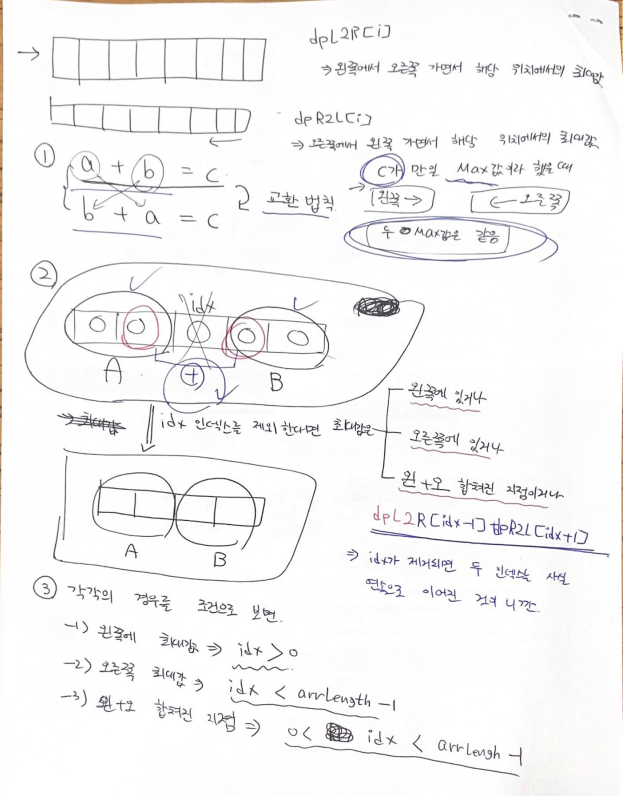 dpL2R[i]
⇒ 왼쪽에서 오른쪽 가면서 해당 위치에서의 최대값
dpR2L[i]
⇒ 오른쪽에서 왼쪽 가면서 해당 위치에서의 최대값
①
a + b = c
b + a = c
교환 법칙
C가 만일 Max값이라 했을 때
왼쪽 →
← 오른쪽
두 Max값은 같음
②
idx
A
+
B
idx 인덱스를 제외 한다면 최대값은
왼쪽에 있거나
오른쪽에 있거나
왼+오 합쳐진 지점이거나
dpL2R[idx-1]+dpR2L[idx+1]
⇒ idx가 제거되면 두 인덱스는 사실
연속으로 이어진 것이 니깐.
A
B
③ 각각의 경우를 조건으로 보면.
-1) 왼쪽에 최대값 ⇒ idx > 0
-2) 오른쪽 최대값 ⇒ idx < arrlength -1
-3) 왼+오 합쳐진 지점 ⇒ 0 < idx < arrlengh -1